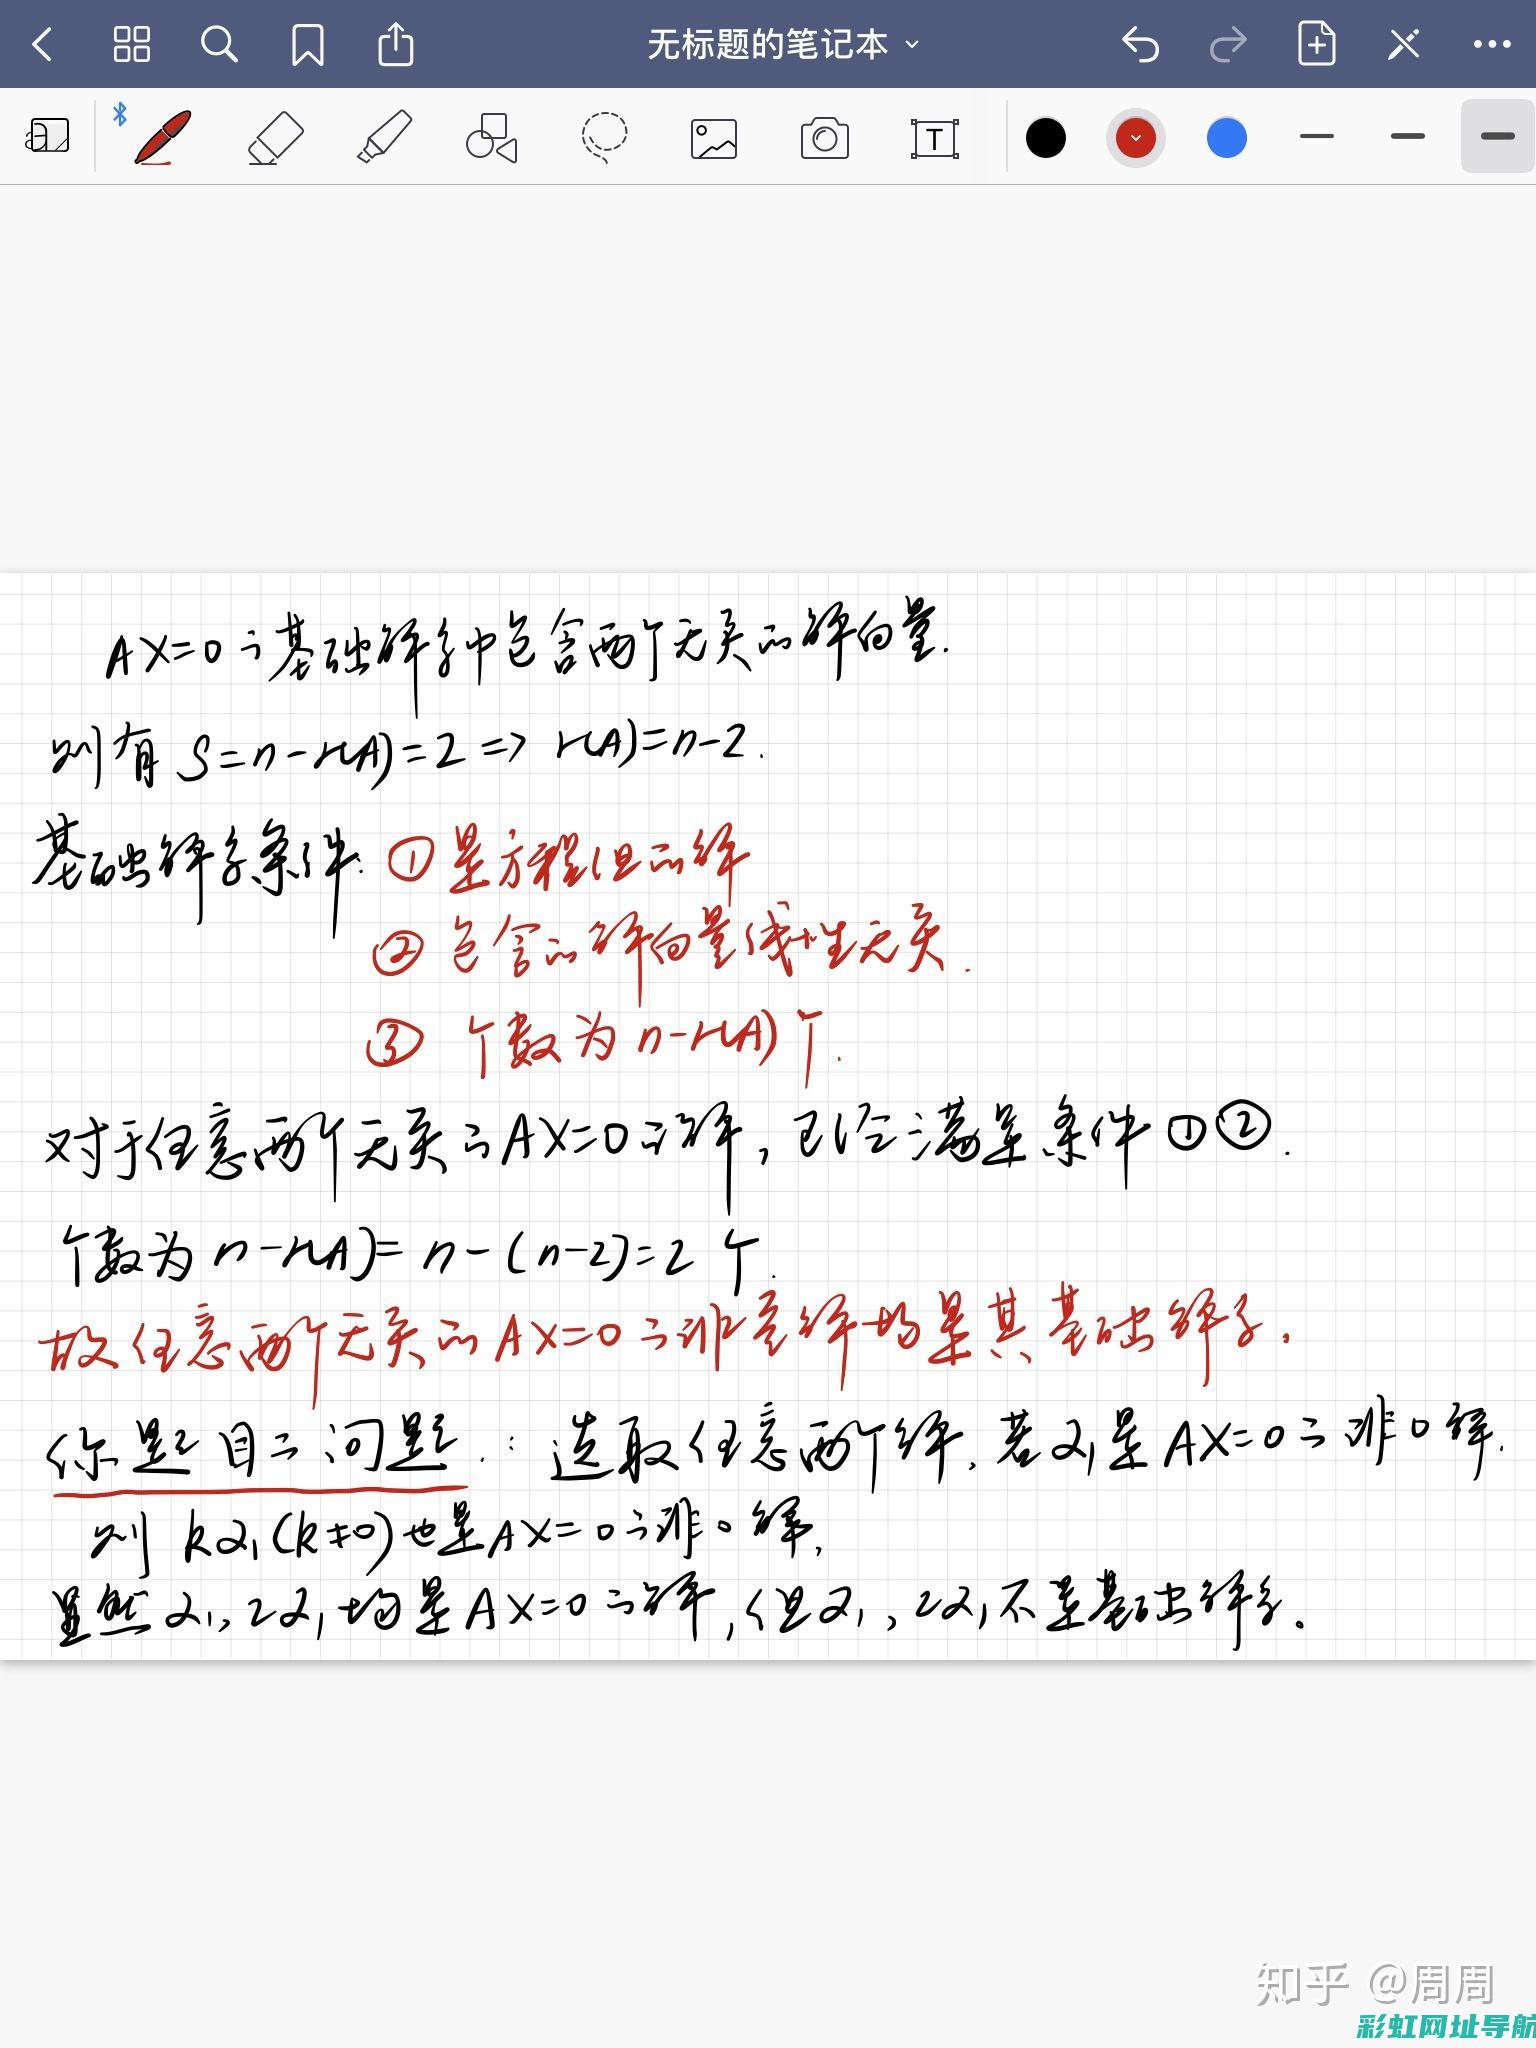 无标题的笔记本
T
AX=0的基础解系中包含两个无关的解向量.
则有 S=n-r(A)=2 => r(A)=n-2.
基础解系条件: ①是方程组的解
②包含的解向量线性无关.
③ 个数为 n-r(A)个.
对于任意两个无关的AX=0的解,已经满足条件①②.
个数为 n-r(A)=n-(n-2)=2 个.
故任意两个无关的AX=0的非零解均是其基础解系.
你题目的问题: 选取任意两个解.若α₁是AX=0的非0解.
则 kα₁(k≠0)也是AX=0的非0解.
虽然α₁,2α₁均是AX=0的解,但α₁,2α₁不是基础解系.
知乎 @周周
彩虹网址导航